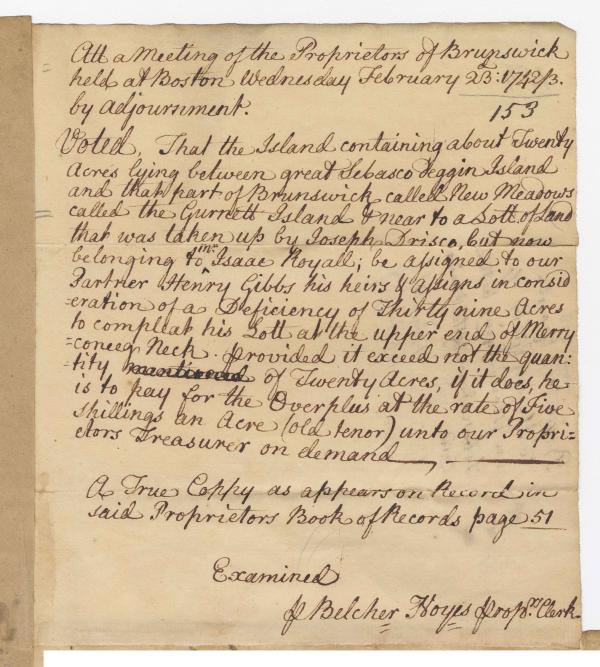 Att a Meeting of the Proprietors of Brunswick
held at Boston Wednesday February 23: 1742/3.
by adjournment.
153
Voted, That the Island containing about Twenty
Acres lying between great Sebasco Deggin Island
and that part of Brunswick called New Meadows
called the Gurnett Island & near to a Lott of Land
that was taken up by Joseph Drisco, but now
belonging to mr. Isaac Royall; be assigned to our
Partner Henry Gibbs his heirs & assigns in consid
=eration of a Deficiency of Thirty nine Acres
to compleat his Lott at the upper end of Merry
=coneeg Neck. provided it exceed not the quan:
=tity mentioned of Twenty Acres, if it does, he
is to pay for the Overplus at the rate of Five
shillings an Acre (old tenor) unto our Propri=
etors Treasurer on demand
A True Coppy as appears on Record in
said Proprietors Book of Records page 51
Examined
p Belcher Noyes Propрs. Clerk